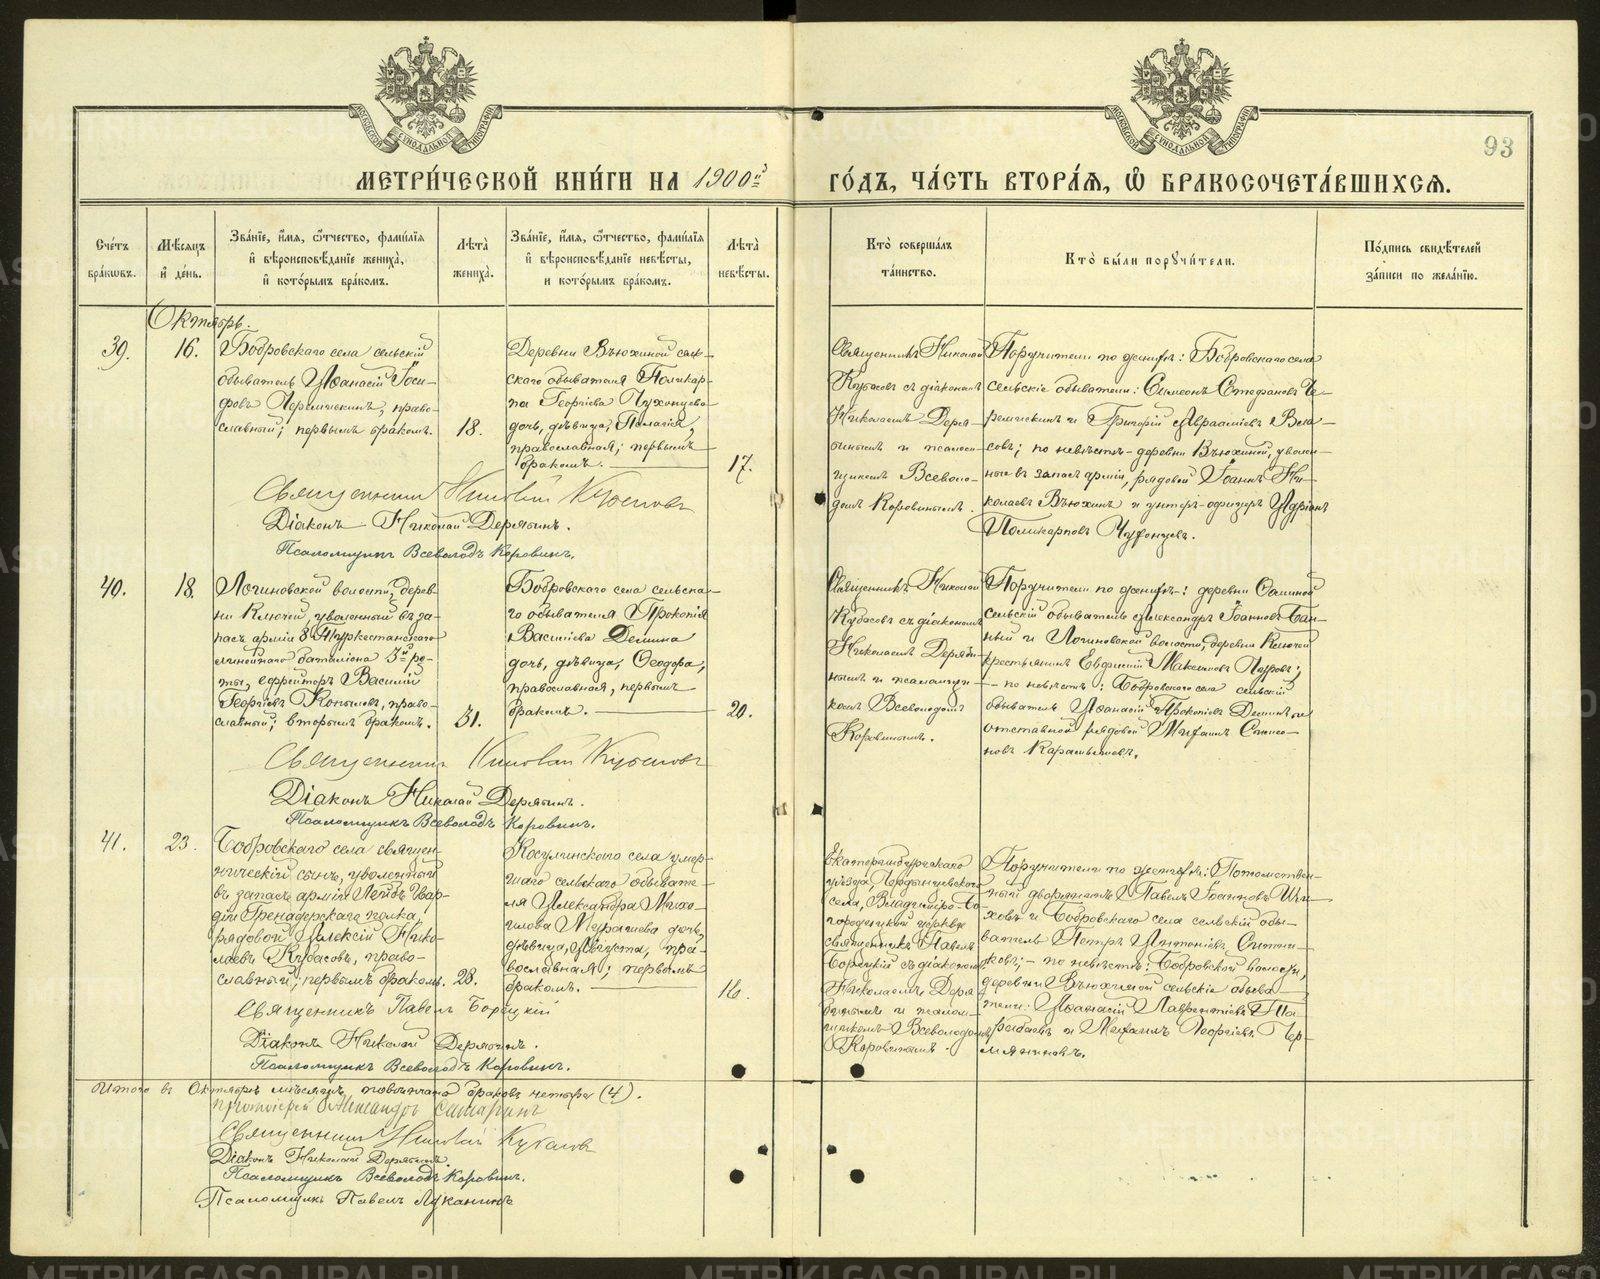 93
МЕТРИ́ЧЕСКОЙ КНИ́ГИ НА 1900й ГО́ДЪ, ЧА́СТЬ ВТОРА́Я, Ѽ БРАКОСОЧЕТА́ВШИХСЯ.
Сче́тъ бра́ковъ.
Мѣ́сяцъ и҆ де́нь.
Зва́нїе, и҆́мя, ѻ҆́тчество, фами́лїя и҆ вѣроисповѣ́данїе жениха̀, и҆ кото́рымъ бра́комъ.
Лѣ́та жениха̀.
Зва́нїе, и҆́мя, ѻ҆́тчество, фами́лїя и҆ вѣроисповѣ́данїе невѣ́сты, и кото́рымъ бра́комъ.
Лѣ́та невѣ́сты.
Кто̀ соверша́лъ та́инство.
Кто̀ бы́ли пору́чители.
По́дпись свидѣ́телей за́писи по жела́нїю.
Октябрь.
39.
16.
Бобровскаго села сельскій
обыватель Аѳанасій Іоси-
фовъ Черемискинъ, право-
славный; первымъ бракомъ.
18.
Деревни Вьюхиной сель-
скаго обывателя Поликар-
па Георгіева Чухонцева
дочь, дѣвица, Пелагія,
православная; первымъ
бракомъ.
17.
Священникъ Николай
Кубасовъ съ діакономъ
Николаемъ Деря-
бинымъ и псалом-
щикомъ Всеволо-
домъ Коровинымъ.
Поручители по женихѣ: Бобровскаго села
сельскіе обыватели: Симеонъ Стефановъ Че-
ремискинъ и Григорій Авраамiевъ Вла-
совъ; по невѣстѣ - деревни Вьюхиной, уволен-
ные въ запасъ арміи, рядовой Іоаннъ Ни-
колаевъ Вьюхинъ и унтеръ-офицеръ Адріанъ
Поликарповъ Чухонцевъ.
Священникъ Николай Кубасовъ
Діаконъ Николай Дерябинъ.
Псаломщикъ Всеволодъ Коровинъ.
40.
18.
Логиновской волости, дерев-
ни Ключей, уволенный въ за-
пасъ арміи 8 Туркестанскаго
линейнаго баталіона 3й ро-
ты, ефрейторъ Василій
Георгіевъ Копыловъ, право-
славный; вторымъ бракомъ.
31.
Бобровскаго села сельска-
го обывателя Прокопія
Василіева Демина
дочь, дѣвица, Ѳеодора,
православная, первымъ
бракомъ.
20.
Священникъ Николай
Кубасовъ съ діакономъ
Николаемъ Деряби-
нымъ и псаломщи-
комъ Всеволодомъ
Коровинымъ.
Поручители по женихѣ: деревни
сельскій обыватель Александръ Іоанновъ
и Логиновской волости, деревни Ключей
крестьянинъ Евфимій Максимовъ
по невѣстѣ: Бобровскаго села сельскій
обыватель Аѳанасій Прокопіевъ Деминъ и
отставной рядовой Михаилъ Симео-
новъ
Священникъ Николай Кубасовъ
Діаконъ Николай Дерябинъ.
Псаломщикъ Всеволодъ Коровинъ.
41.
23.
Бобровскаго села священ-
ническій сынъ, уволенный
въ запасъ арміи Лейбъ Гвар-
діи Гренадерскаго полка,
рядовой Алексій Нико-
лаевъ Кубасовъ, право-
славный; первымъ бракомъ.
28.
Косулинскаго села умер-
шаго сельскаго обывате-
ля Александра Михаи-
лова Мурашева дочь,
дѣвица, Августа, пра-
вославная; первымъ
бракомъ.
16.
Екатеринбургскаго
уѣзда,
села, Владимиро-Бо-
городицкой церкви
священникъ Павелъ
Борецкій съ діакономъ
Николаемъ Деря-
бинымъ и псалом-
щикомъ Всеволодомъ
Коровинымъ.
Поручители по женихѣ: Потомствен-
ный дворянинъ Павелъ Іоанновъ
и Бобровскаго села сельскій обы-
ватель Петръ Антоніевъ
по невѣстѣ: Бобровской волости,
деревни Вьюхиной сельскіе обыва-
тели: Аѳанасій Лаврентіевъ
и Михаилъ Георгіевъ Чер-
Священникъ Павелъ Борецкій
Діаконъ Николай Дерябинъ.
Псаломщикъ Всеволодъ Коровинъ.
Итого въ Октябрѣ мѣсяцѣ повѣнчано браковъ четыре (4).
Протоіерей Александръ
Священникъ Николай Кубасовъ
Діаконъ Николай Дерябинъ
Псаломщикъ Всеволодъ Коровинъ.
Псаломщикъ Павелъ Луканинъ
METRIKI.GASO-URAL.RU